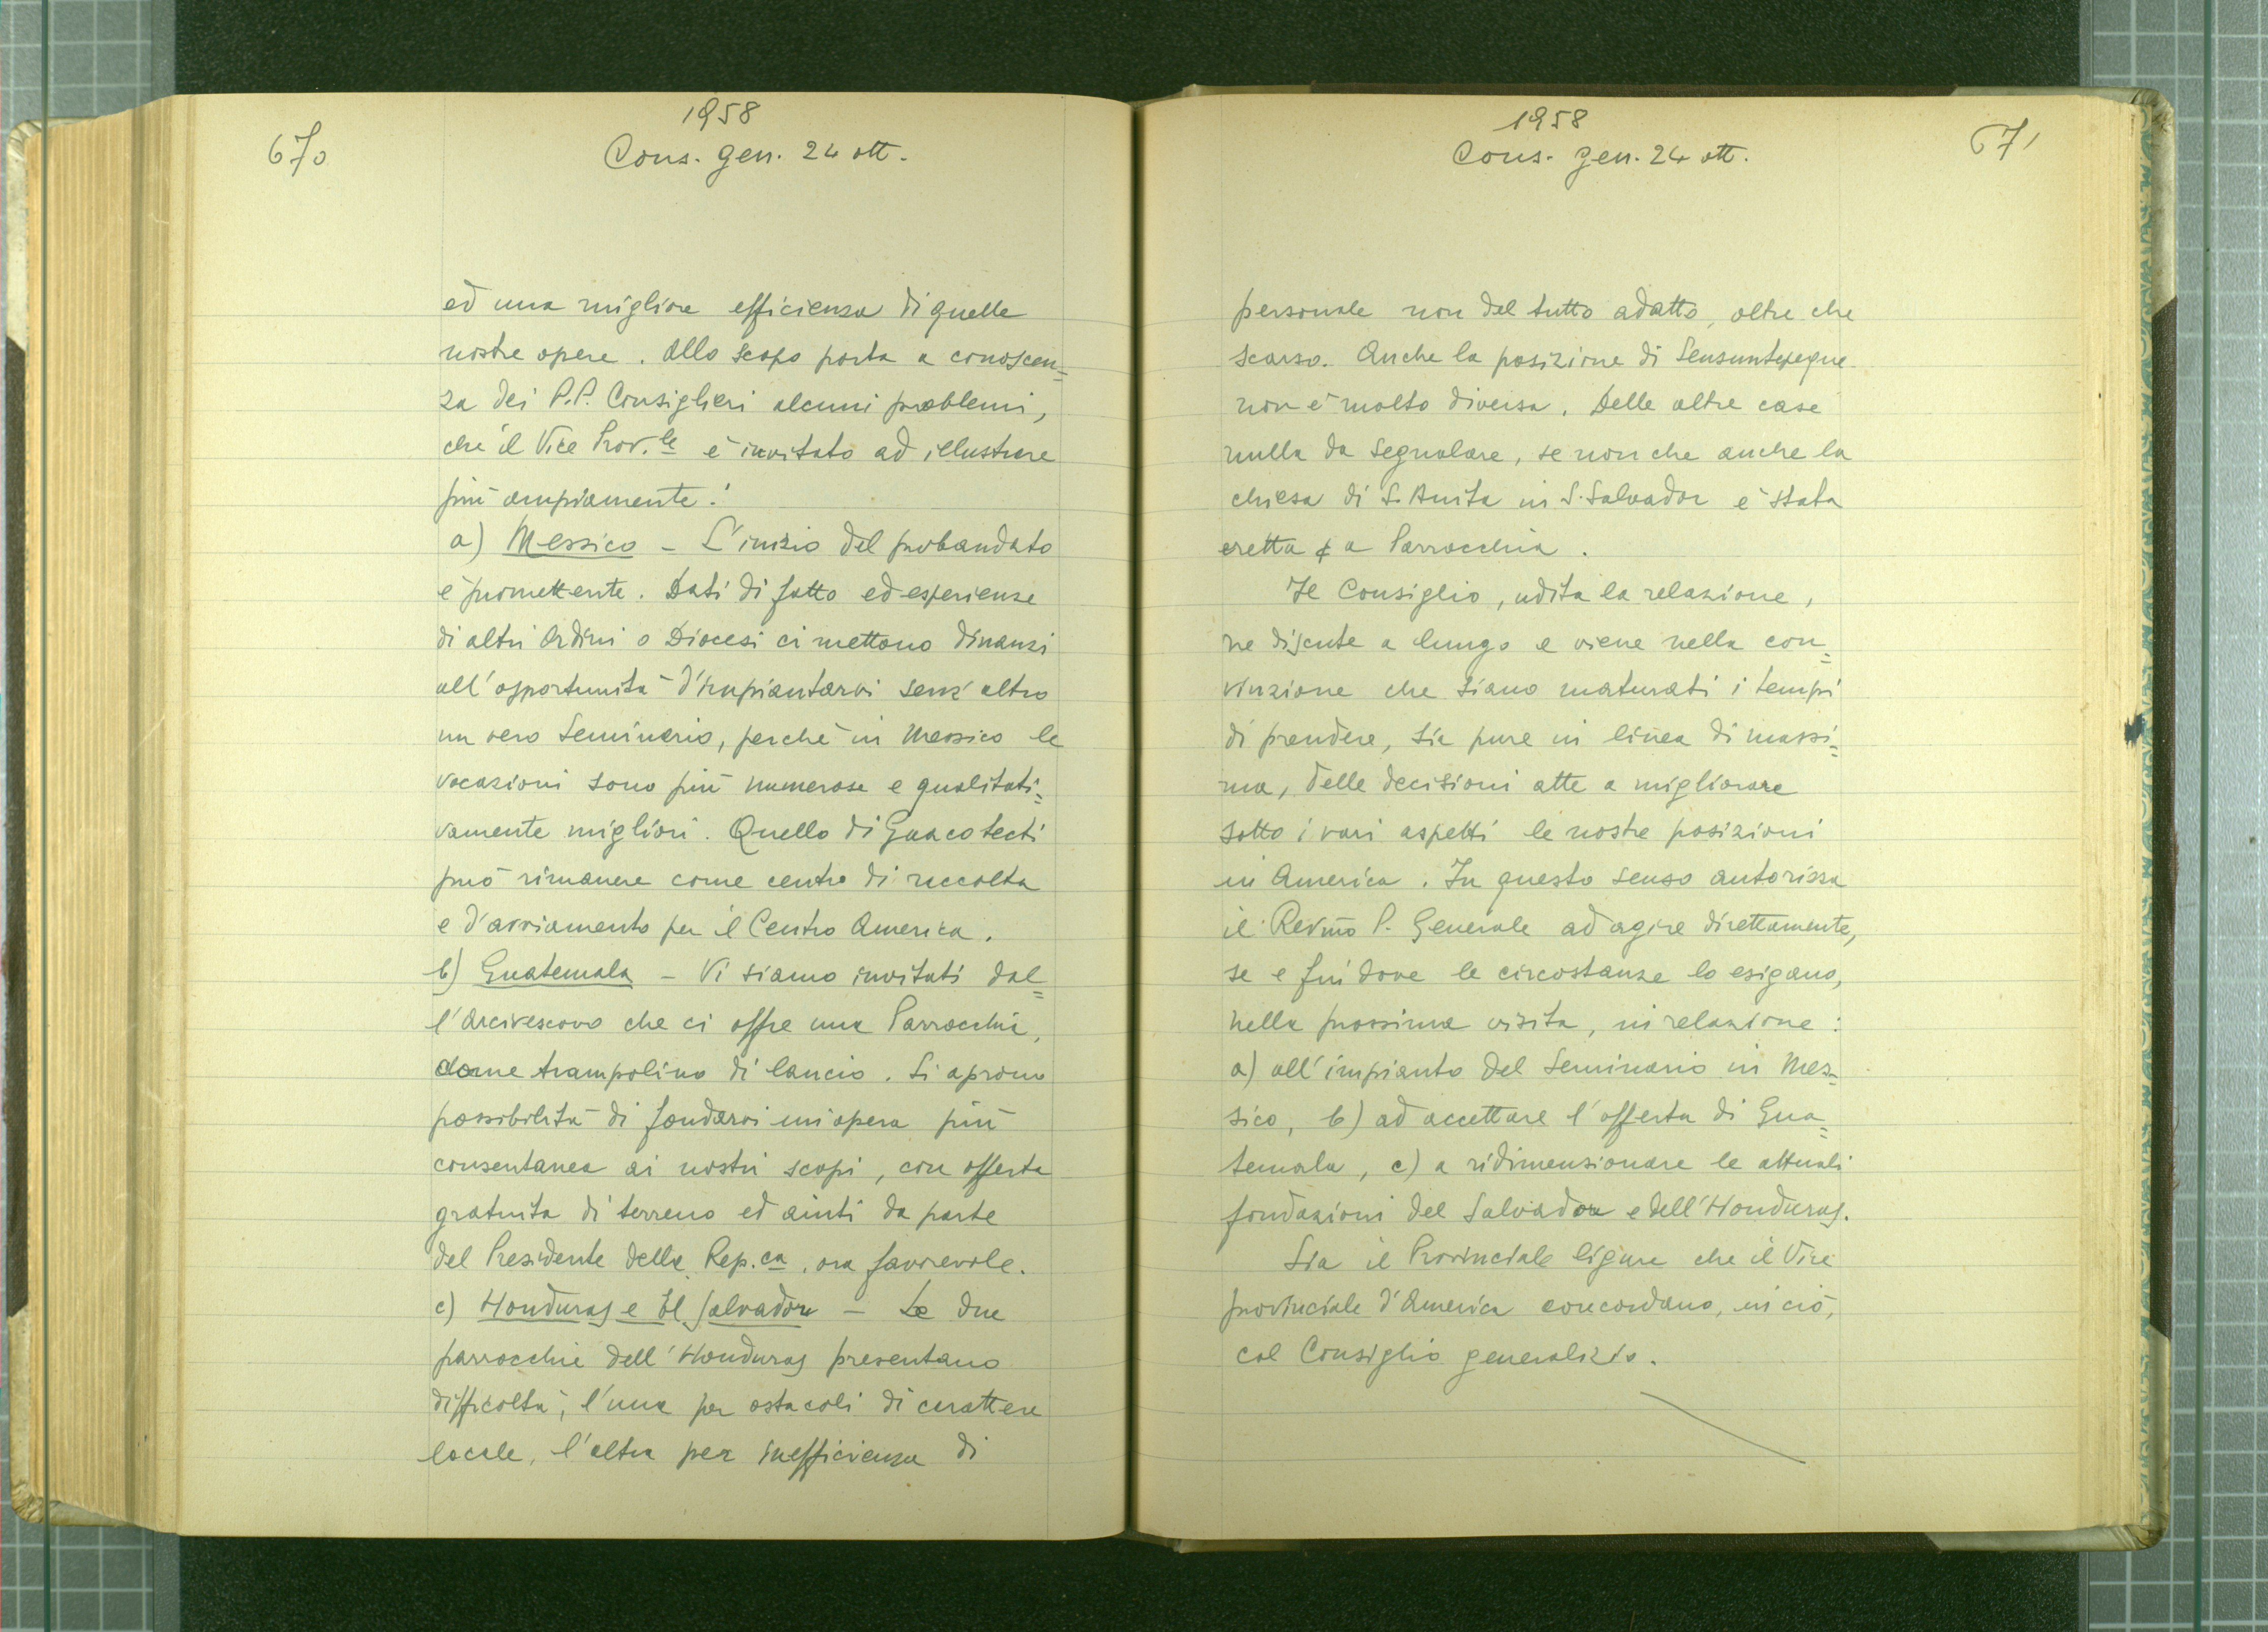 670
1958
Cons. gen. 24 ott.
ed una migliore efficienza di quelle
nostre opere. Allo scopo porta a conoscen=
za dei P.P. Consiglieri alcuni problemi,
che il Vice Prov.le è invitato ad illustrare
più ampiamente:
a) Messico - L'inizio del probandato
è promettente. Dati di fatto ed esperienze
di altri Ordini o Diocesi ci mettono dinanzi
all'opportunità d'impiantarvi senz'altro
un vero Seminario, perchè in Messico le
vocazioni sono più numerose e qualitati=
vamente migliori. Quello di Guacotecti
può rimanere come centro di raccolta
e d'avviamento per il Centro America.
b) Guatemala - Vi siamo invitati dal=
l'Arcivescovo che ci offre una Parrocchia,
come trampolino di lancio. Si aprono
possibilità di fondarvi un'opera più
consentanea ai nostri scopi, con offerta
gratuita di terreno ed aiuti da parte
del Presidente della Rep.ca, ora favorevole.
c) Honduras e El Salvador - Le due
parrocchie dell'Honduras presentano
difficoltà, l'una per ostacoli di carattere
locale, l'altra per inefficienza di
671
1958
Cons. gen. 24 ott.
personale non del tutto adatto, oltre che
scarso. Anche la posizione di Sensuntepeque
non è molto diversa. Delle altre case
nulla da segnalare, se non che anche la
chiesa di S. Anita in S. Salvador è stata
eretta a Parrocchia.
Il Consiglio, udita la relazione,
ne discute a lungo e viene nella con=
vinzione che siano maturati i tempi
di prendere, sia pure in linea di massi=
ma, delle decisioni atte a migliorare
sotto i vari aspetti le nostre posizioni
in America. In questo senso autorizza
il Rev.mo P. Generale ad agire direttamente,
se e fin dove le circostanze lo esigano,
nella prossima visita, in relazione:
a) all'impianto del Seminario in Mes=
sico, b) ad accettare l'offerta di Gua=
temala, c) a ridimensionare le attuali
fondazioni del Salvador e dell'Honduras.
Sia il Provinciale ligure che il Vice
provinciale d'America concordano, in ciò,
col Consiglio generalizio.